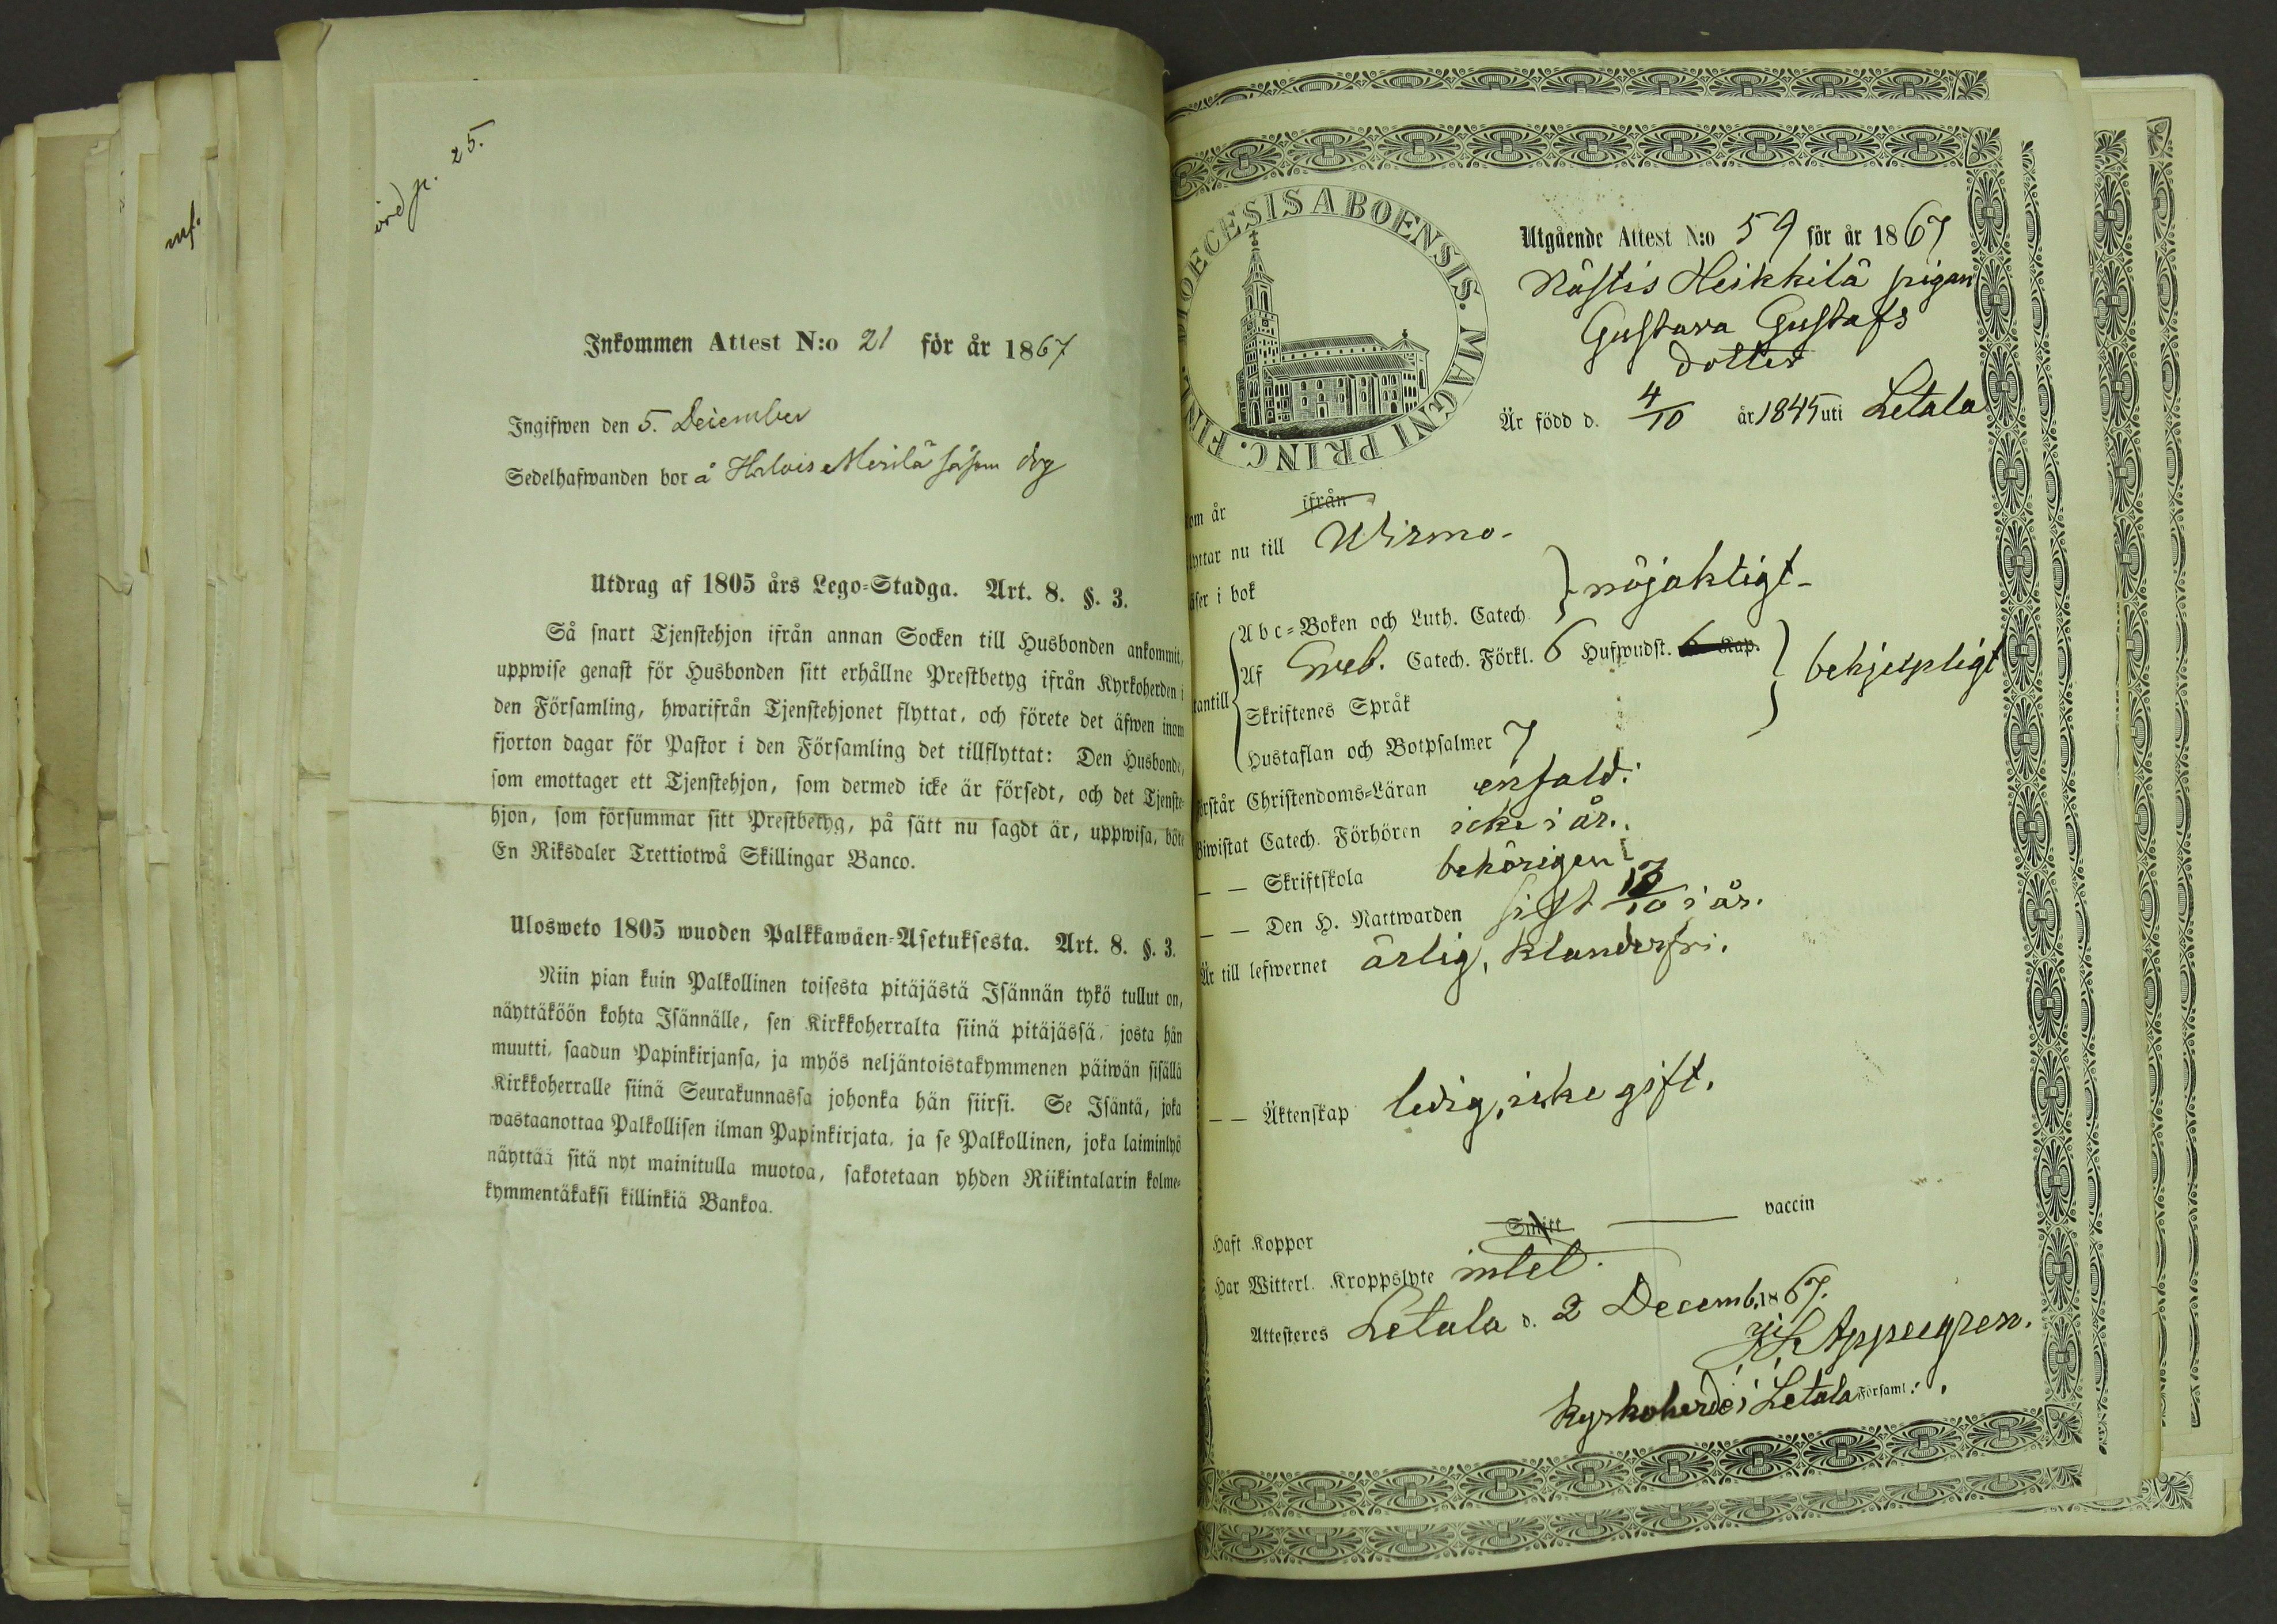 25.
mf.
Inkommen Attest N:o 21 för år 1867
Ingifwen den 5. December
Sedelhafwanden bor å Merilä såsom drg
Utdrag af 1805 års Lego-Stadga. Art. 8. §. 3.
Så snart Tjenstehjon ifrån annan Socken till Husbonden ankommit,
uppwise genast för Husbonden sitt erhållne Prestbetyg ifrån Kyrkoherden i
den Församling, hwarifrån Tjenstehjonet flyttat, och förete det äfwen inom
fjorton dagar för Pastor i den Församling det tillflyttat: Den Husbonde,
som emottager ett Tjenstehjon, som dermed icke är försedt, och det Tjenste-
hjon, som försummar sitt Prestbetyg, på sätt nu sagdt är, uppwisa, böte
En Riksdaler Trettiotwå Skillingar Banco.
Ulosweto 1805 wuoden Palkkawäen-Asetuksesta. Art. 8. §. 3.
Niin pian kuin Palkollinen toisesta pitäjästä Isännän tykö tullut on,
näyttäköön kohta Isännälle, sen Kirkkoherralta siinä pitäjässä, josta hän
muutti, saadun Papinkirjansa, ja myös neljäntoistakymmenen päiwän sisällä
Kirkkoherralle siinä Seurakunnassa johonka hän siirsi. Se Isäntä, joka
wastaanottaa Palkollisen ilman Papinkirjata, ja se Palkollinen, joka laiminlyö
näyttää sitä nyt mainitulla muotoa, sakotetaan yhden Riikintalarin kolme-
kymmentäkaksi killinkiä Bankoa.
DIOECESIS ABOENSIS. MAGNI PRINC. FINL.
Utgående Attest N:o 59 för år 1867
Nästis Heikkilä pigan
Gustava Gustafs
dotter
Är född d. 4/10 år 1845 uti Letala
om år ifrån
lyttar nu till Wirmo.
äser i bok
Abc-Boken och Luth. Catech. } nöjaktigt
Af Sveb. Catech. Förkl. 6 Hufwudst. 6 Kap.
tantill Skriftenes Språk } behjelpligt
Hustaflan och Botpsalmer 7
örstår Christendoms-Läran enfald.
Biwistat Catech. Förhören icke i år.
— — Skriftskola behörigen
— — Den H. Nattwarden sist i år.
Är till lefwernet ärlig, klanderfri.
— — Äktenskap ledig, icke gift.
Haft Koppor Smitt — vaccin
Har Witterl. Kroppslyte intet.
Attesteres Letala d. 2 Decemb. 1867.
Appelgren.
Kyrkoherde i Letala Församl.